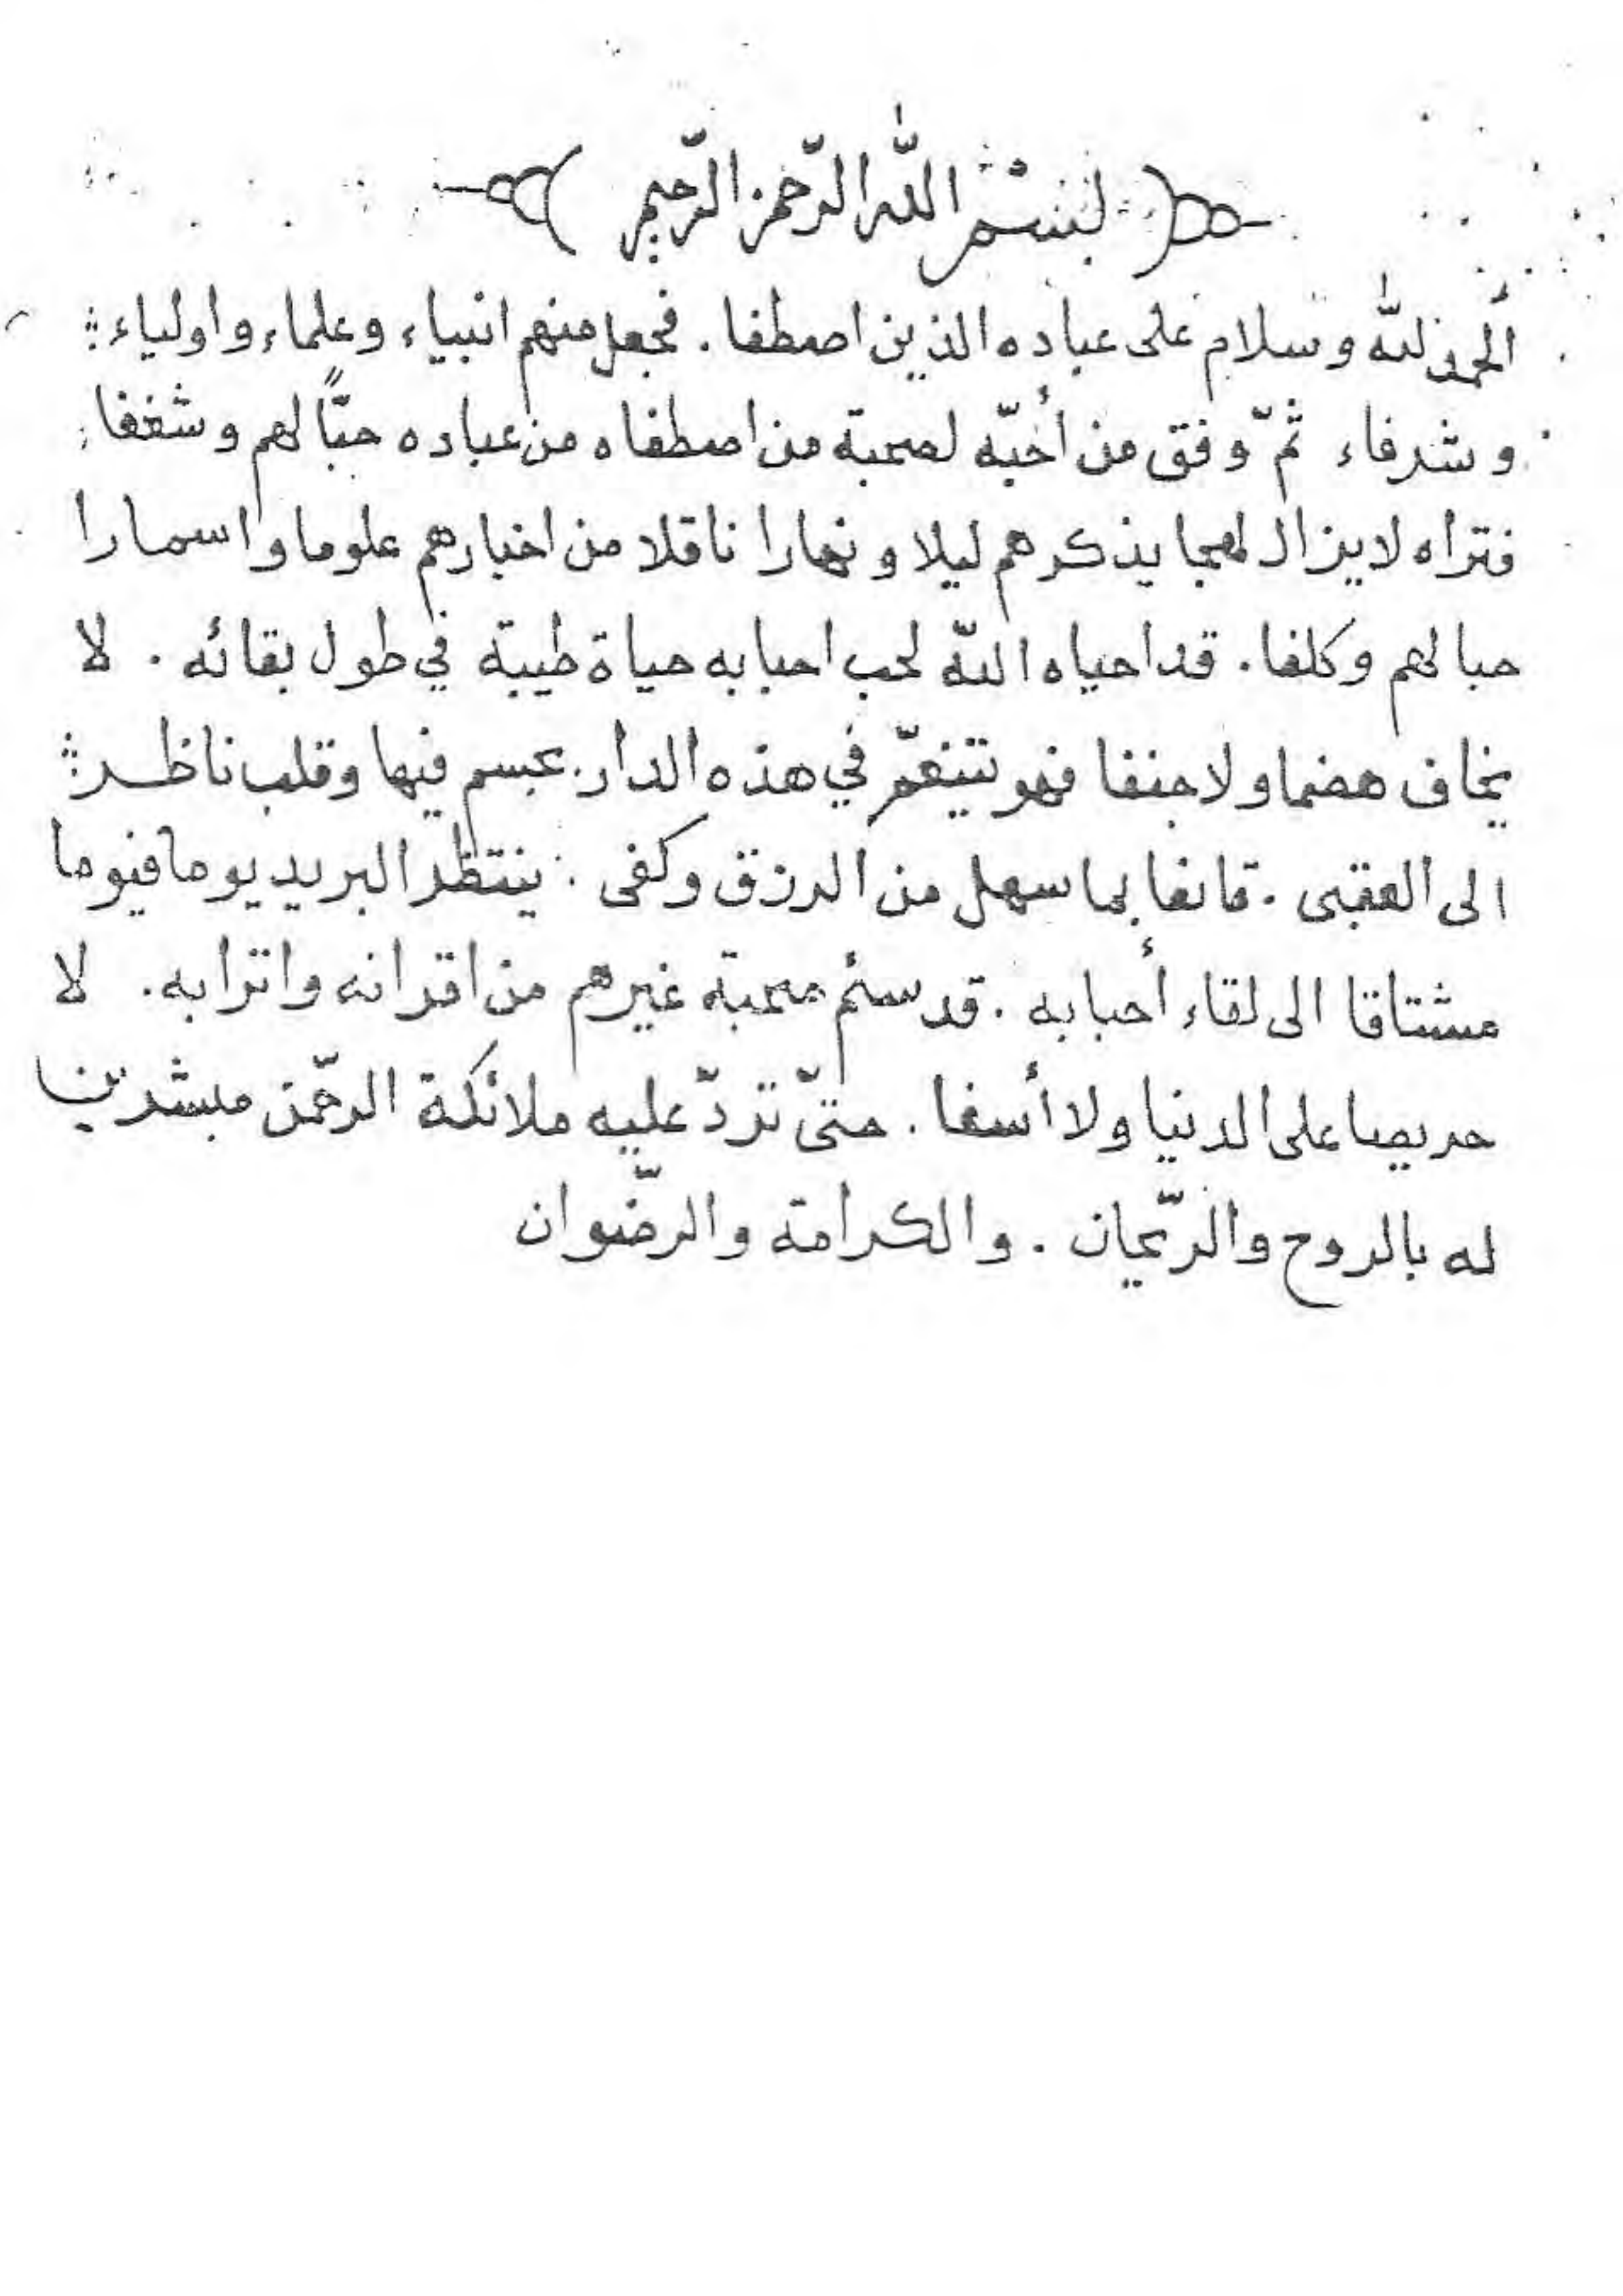 بسم الله الرّحمن الرّحيم
ألحمد لله وسلام على عباده الذين اصطفا . فجعل منهم انبياء وعلماء واولياء
وشرفاء ثمّ وفق من أحبّه لصحبة من اصطفاه من عباده حبًّا لهم وشغفا
فتراه لا يزال لهجا بذكرهم ليلا ونهارا ناقلا من اخبارهم علوما واسمارا
حبا لهم وكلفا . قد احياه الله لحب احبابه حياة طيبة في طول بقائه . لا
يخاف هضما ولا جنفا فهو يتنعّم في هذه الدار . بجسم فيها وقلب ناظر
الى العقبى . قانعا بما سهل من الرزق وكفى . ينتظر البريد يوما فيوما
مشتاقا الى لقاء أحبابه . قد سئم صحبة غيرهم من اقرانه واترابه . لا
حريصا على الدنيا ولا أسفا . حتىّ تردّ عليه ملائكة الرحمّن مبشرين
له بالروح والرّيحان . والكرامة والرضّوان